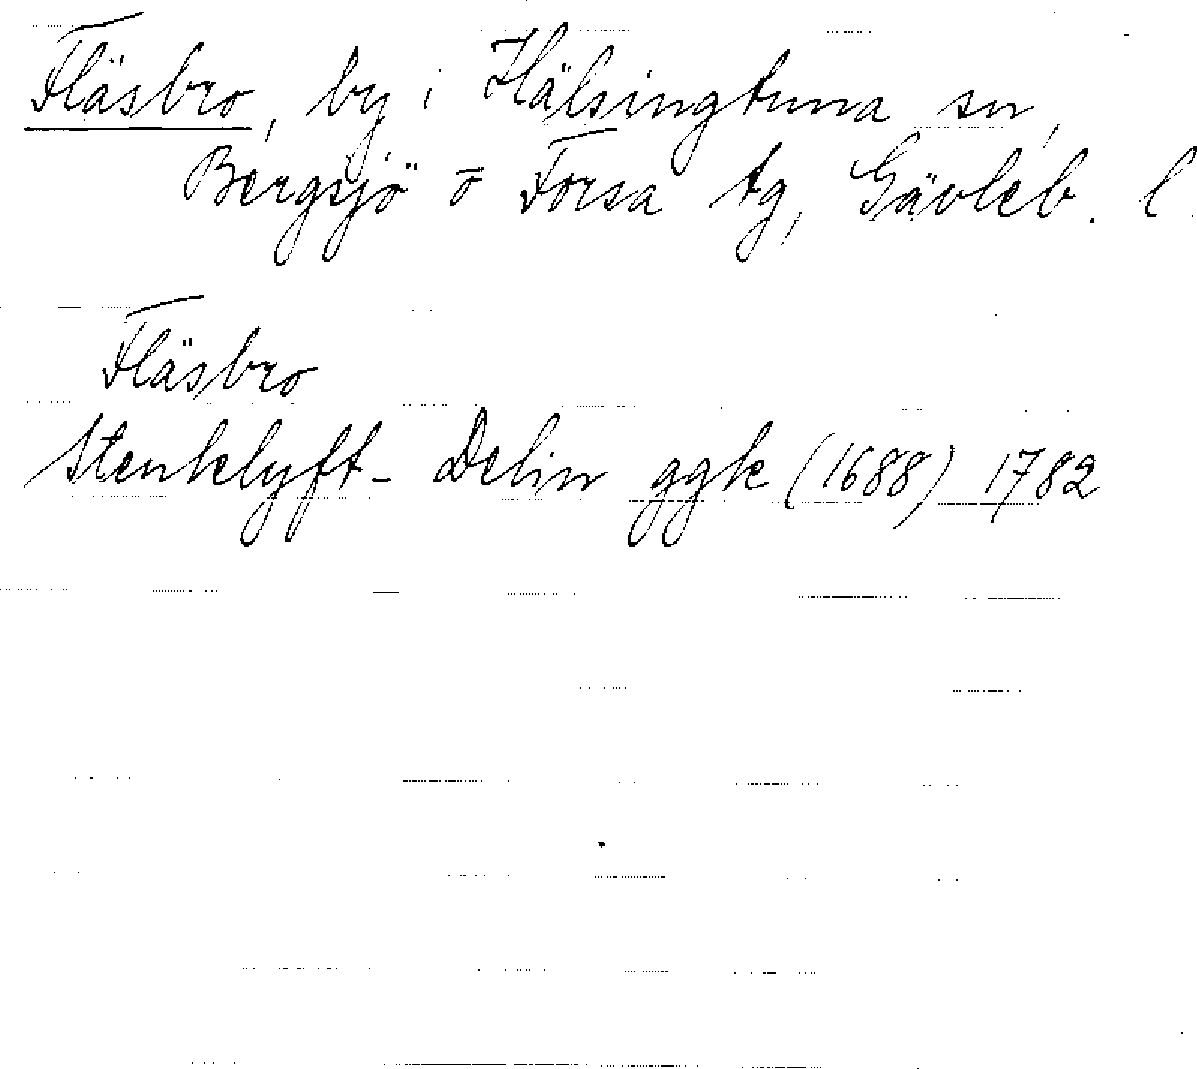 Fläsbro, by i Hälsingtuna sn,
Bergsjö o Forsa tg, Gävleb. l.
Fläsbro
Stenklyft- Delin ggk (1688) 1782